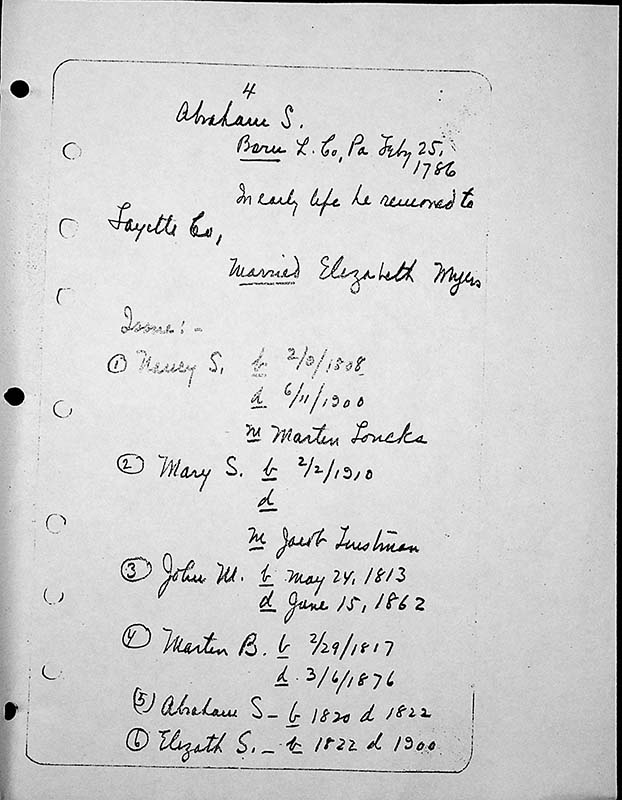 4
Abraham S.
Born L. Co, Pa Feby 25,
1786
In early life he removed to
Fayette Co,
Married Elizabeth Myers
Issue: -
① Nancy S. b 2/3/1808
d 6/11/1900
m Martin Loucks
② Mary S. b 2/2/1910
d
m Jacob
③ John M. b May 24, 1813
d June 15, 1862
④ Martin B. b 2/29/1817
d. 3/6/1876
⑤ Abraham S - b 1820 d 1822
⑥ Elizath S. - b 1822 d 1900